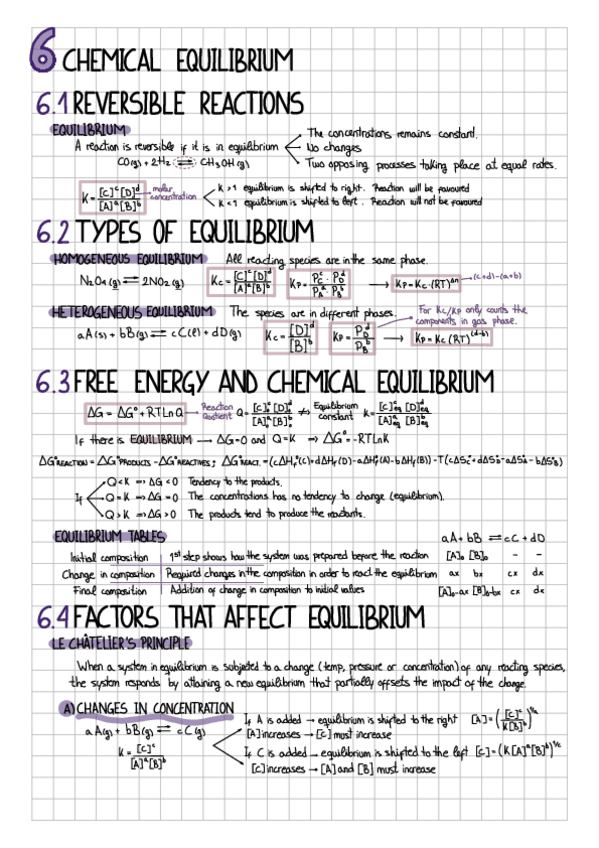 6 CHEMICAL EQUILIBRIUM
6.1 REVERSIBLE REACTIONS
EQUILIBRIUM
A reaction is reversible if it is in equilibrium
The concentrations remains constant.
No changes
Two opposing processes taking place at equal rates.
CO(g) + 2H₂ ⇌ CH₃OH(g)
K = [C]ᶜ[D]ᵈ / [A]ᵃ[B]ᵇ → molar concentration
K > 1 equilibrium is shifted to right. Reaction will be favoured
K < 1 equilibrium is shifted to left. Reaction will not be favoured
6.2 TYPES OF EQUILIBRIUM
HOMOGENEOUS EQUILIBRIUM All reacting species are in the same phase.
N₂O₄(g) ⇌ 2NO₂(g) Kc = [C]ᶜ[D]ᵈ / [A]ᵃ[B]ᵇ Kp = Pcᶜ · P_Dᵈ / P_Aᵃ · P_Bᵇ → Kp = Kc · (RT)^Δn → (c+d)-(a+b)
HETEROGENEOUS EQUILIBRIUM The species are in different phases.
For Kc/Kp only counts the components in gas phase.
aA(s) + bB(g) ⇌ cC(l) + dD(g) Kc = [D]ᵈ / [B]ᵇ Kp = P_Dᵈ / P_Bᵇ → Kp = Kc (RT)^(d-b)
6.3 FREE ENERGY AND CHEMICAL EQUILIBRIUM
ΔG = ΔG° + RTLnQ → Reaction Quotient Q = [C]ᶜ₀[D]ᵈ₀ / [A]ᵃ₀[B]ᵇ₀ ≠ Equilibrium constant K = [C]ᶜeq[D]ᵈeq / [A]ᵃeq[B]ᵇeq
If there is EQUILIBRIUM → ΔG=0 and Q=K ⇒ ΔG°=-RTLnK
ΔG°REACTION = ΔG°PRODUCTS - ΔG°REACTIVES ; ΔG°REACT. = (cΔH°f(C)+dΔH°f(D)-aΔH°f(A)-bΔH°f(B)) - T(cΔS°C+dΔS°D-aΔS°A-bΔS°B)
If
Q < K ⇒ ΔG < 0 Tendency to the products.
Q = K ⇒ ΔG = 0 The concentrations has no tendency to change (equilibrium).
Q > K ⇒ ΔG > 0 The products tend to produce the reactants.
EQUILIBRIUM TABLES aA + bB ⇌ cC + dD
Initial composition 1st step shows how the system was prepared before the reaction [A]₀ [B]₀ - -
Change in composition Required changes in the composition in order to react the equilibrium ax bx cx dx
Final composition Addition of change in composition to initial values [A]₀-ax [B]₀-bx cx dx
6.4 FACTORS THAT AFFECT EQUILIBRIUM
LE CHÂTELIER'S PRINCIPLE
When a system in equilibrium is subjected to a change (temp, pressure or concentration) of any reacting species,
the system responds by attaining a new equilibrium that partially offsets the impact of the change.
A) CHANGES IN CONCENTRATION
aA(g) + bB(g) ⇌ cC(g)
K = [C]ᶜ / [A]ᵃ[B]ᵇ
If A is added → equilibrium is shifted to the right [A] = ([C]ᶜ / K[B]ᵇ)^1/a
[A] increases → [C] must increase
If C is added → equilibrium is shifted to the left [C] = (K[A]ᵃ[B]ᵇ)^1/c
[C] increases → [A] and [B] must increase